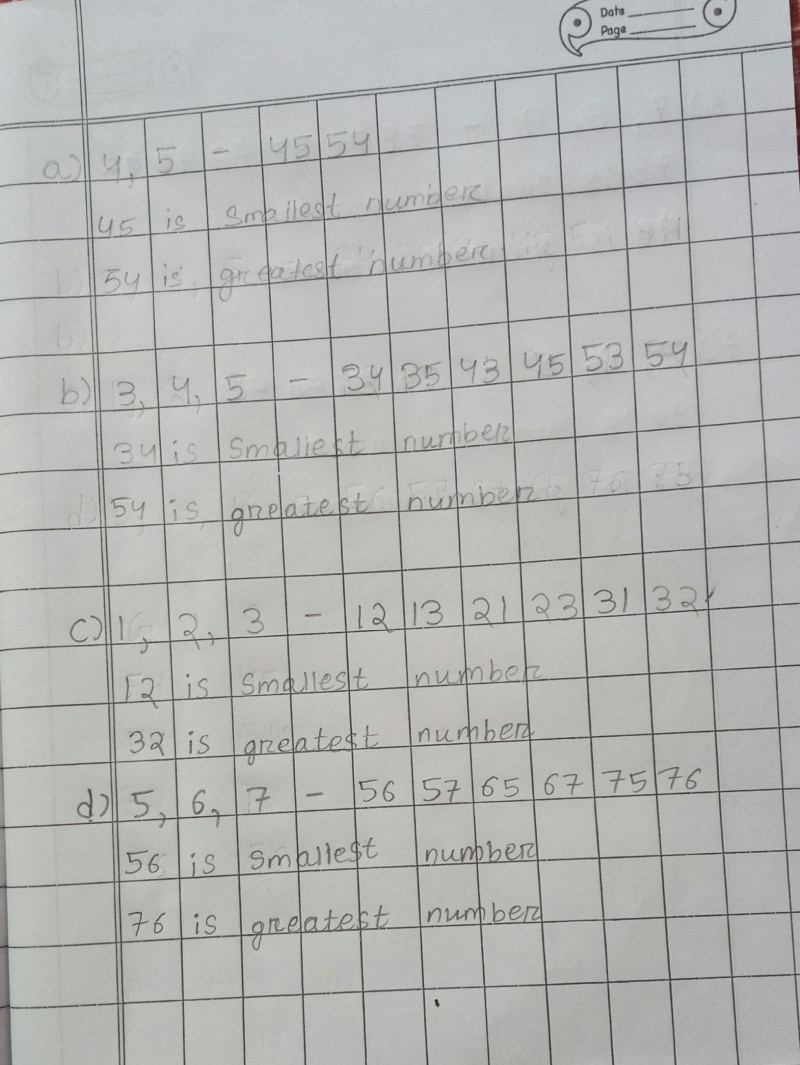 Date
Page
a) 4, 5 - 45 54
45 is smallest number
54 is greatest number
b) 3, 4, 5 - 34 35 43 45 53 54
34 is smallest number
54 is greatest number
c) 1, 2, 3 - 12 13 21 23 31 32
12 is smallest number
32 is greatest number
d) 5, 6, 7 - 56 57 65 67 75 76
56 is smallest number
76 is greatest number